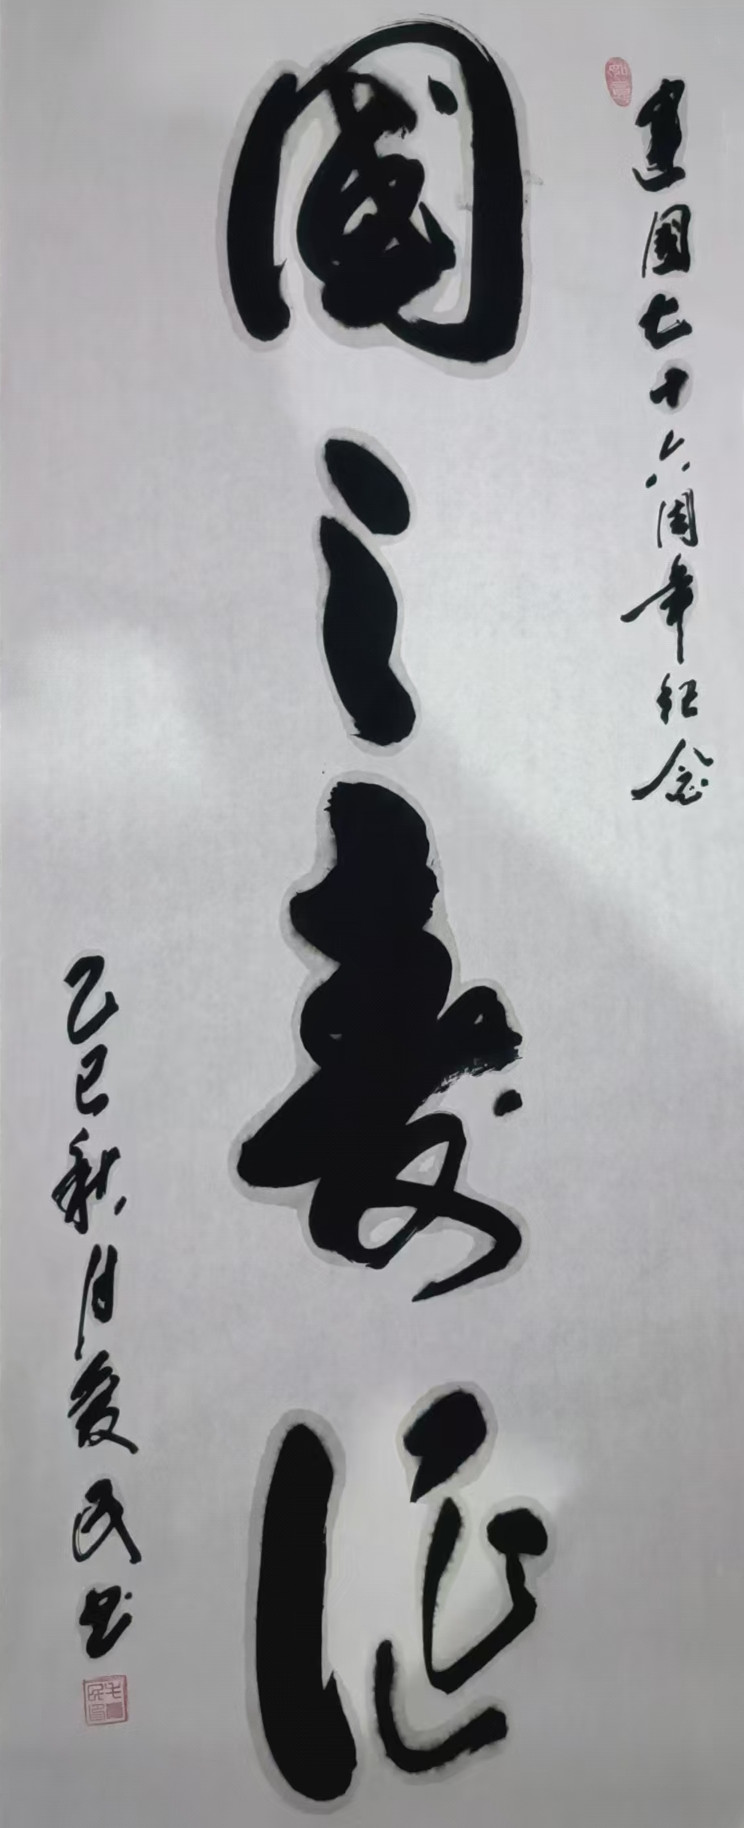 建國七十六周年纪念
國之壽诞
乙巳秋月爱民书